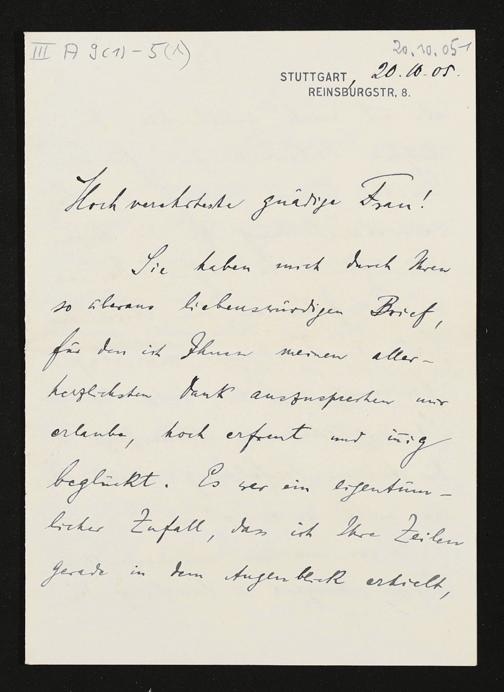 III A 9(1) - 5(1)
20.10.05-1
STUTTGART, 20.10.05.
REINSBURGSTR. 8.
Hochverehrteste gnädige Frau!
Sie haben mich durch Ihren
so überaus liebenswürdigen Brief,
für den ich Ihnen meinen aller-
herzlichsten Dank auszusprechen mir
erlaube, hoch erfreut und innig
beglückt. Es war ein eigentüm-
licher Zufall, dass ich Ihre Zeilen
gerade in dem Augenblick erhielt,